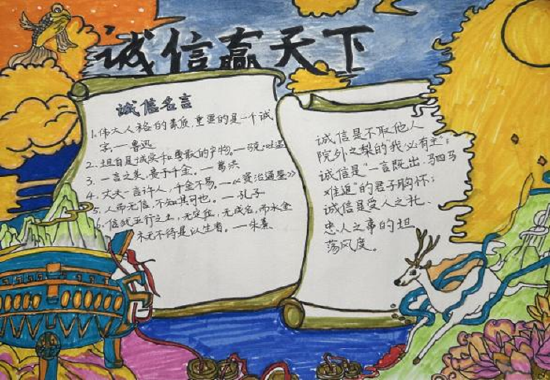 诚信赢天下
诚信名言
1. 伟大人格的素质，重要的是一个诚
字。—鲁迅
2. 坦白是诚实和勇敢的产物。—马克·吐温
3. 一言之美，贵于千金。—葛洪
4. 丈夫一言许人，千金不易。—《资治通鉴》
5. 人而无信，不知其可也。—孔子
6. 信犹五行之土，无定位，无成名，而水金
木无不待是以生者。—朱熹
诚信是不取他人
院外之梨的我心有主；
诚信是“一言既出，驷马
难追”的君子胸怀；
诚信是受人之托、
忠人之事的坦
荡风度。